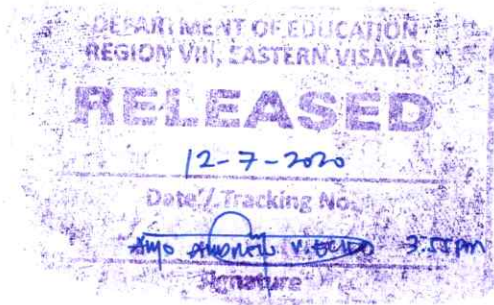 DEPARTMENT OF EDUCATION
REGION VIII, EASTERN VISAYAS
RELEASED
12-7-2020
Date/Tracking No.
3:55 pm
Signature